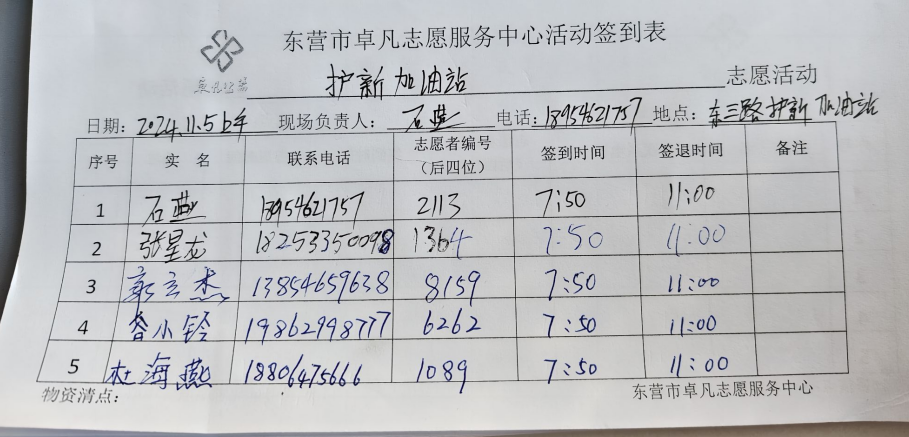 东营市卓凡志愿服务中心活动签到表
卓凡公益
护新加油站 志愿活动
日期：2024.11.5上午 现场负责人：石燕 电话：18954621757 地点：东三路护新加油站
序号 实 名 联系电话 志愿者编号（后四位） 签到时间 签退时间 备注
1 石燕 18954621757 2113 7:50 11:00
2 张星龙 18253350098 1364 7:50 11:00
3 郭立杰 13854659638 8159 7:50 11:00
4 小铃 19862998777 6262 7:50 11:00
5 杜海燕 18806475666 1089 7:50 11:00
物资清点： 东营市卓凡志愿服务中心